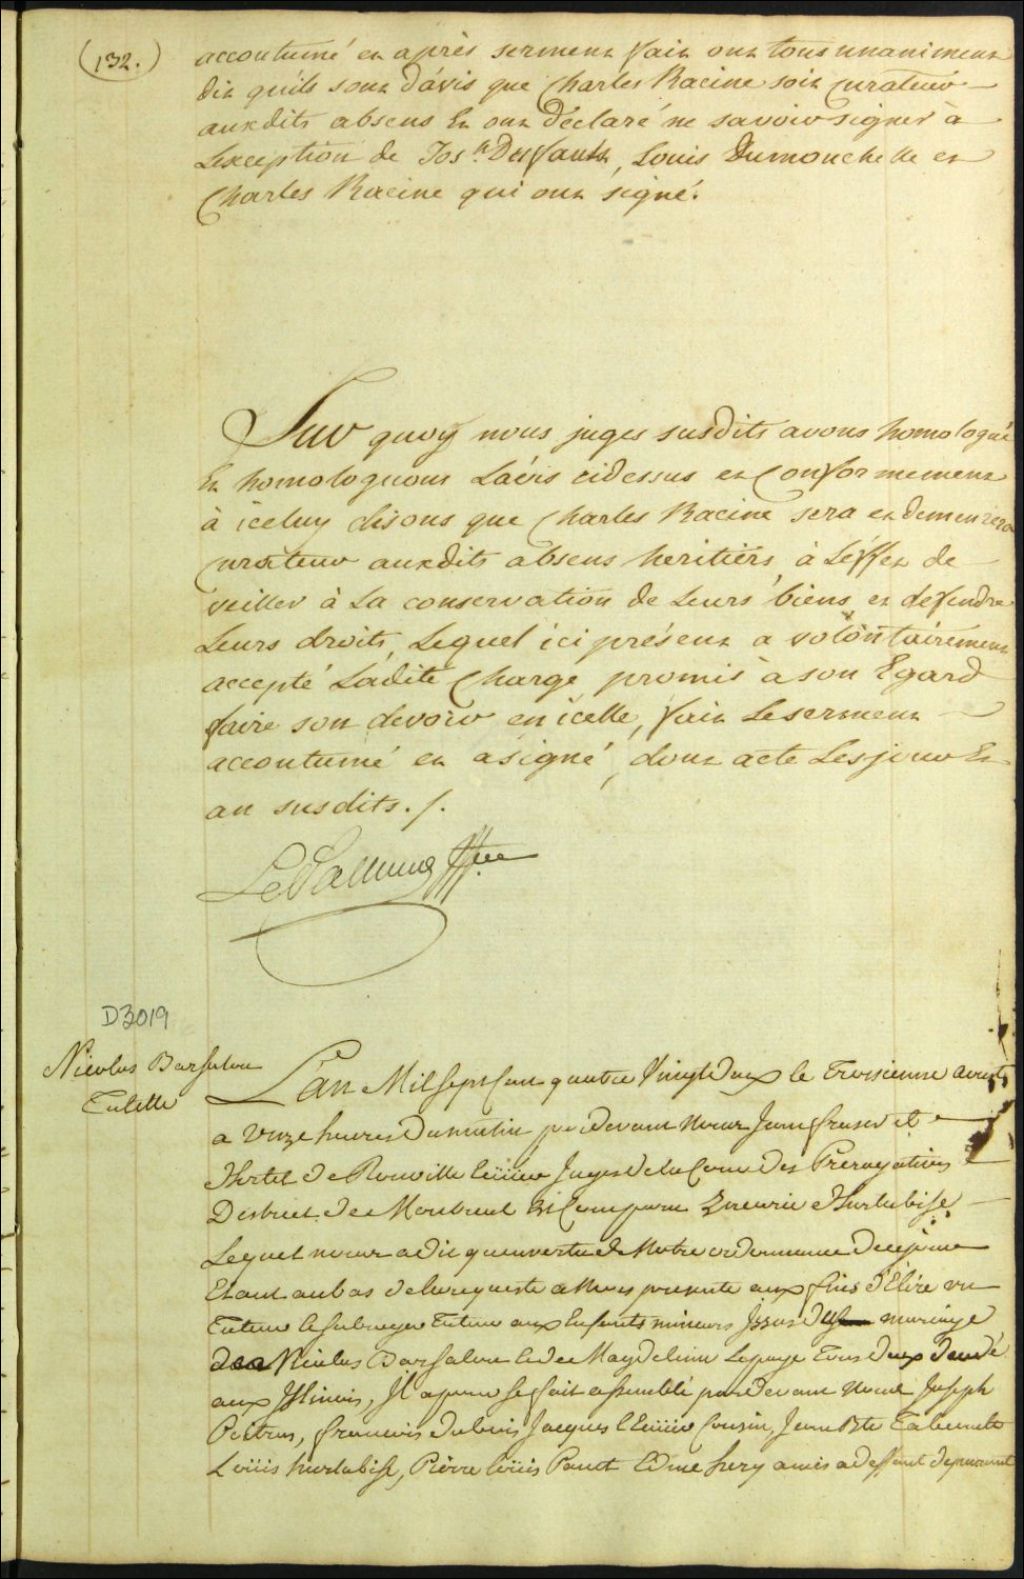 (132.)
accoutumé et après serment fait ont tous unaniment
dit quils sont davis que Charles Racine soit curateur
auxdits absens Et ont déclaré ne savoir signer à
Lexception de Jos.h Desfauts, Louis Dumouchelle et
Charles Racine qui ont signé.
Sur quoy nous juges susdits avons homologué
Et homologuons Lavis cidessus et Conformement
à iceluy disons que Charles Racine sera et demeurera
curateur auxdits absens heritiers, à Léffet de
veiller à La conservation de Leurs biens et defendre
Leurs droits, Lequel ici présent a volontairement
accepté Ladite Charge promis à son Egard
faire son devoir en icelle, fait Leserment
accoutumé et asigné, dont acte Lesjour Et
an susdits. /.
LePallieur Gffier
D3019
Nicolas Barsalou
Tutelle
L'an Mil Sept Cent quatre Vingt Deux le Troisieme
a Onze heures Du matin pardevant Nous Jean fraser et
Hertel De Rouville Ecuier Juges De la Cour Des Prerogatives
District De Montreal Est Comparu Hurtubise
Lequel nous a dit quenvertu de Notre ordonnance De cejour
Etant aubas de la requeste a Nous presente aux fins d'Elire un
Tuteur et subroger Tuteur aux Enfants mineurs Issus du mariage
De Nicolas Barsalou et de Magdelaine Lepage Tous deux decedé
aux Illinois, Il apour ce fait assemblé pardevant Nous Joseph
Poitras, francois Dubois Jacques Cousin, Jean Bte Tabeault
Loüis hurtubise, Pierre Loüis Panet Edme hery amis a deffaut deparent